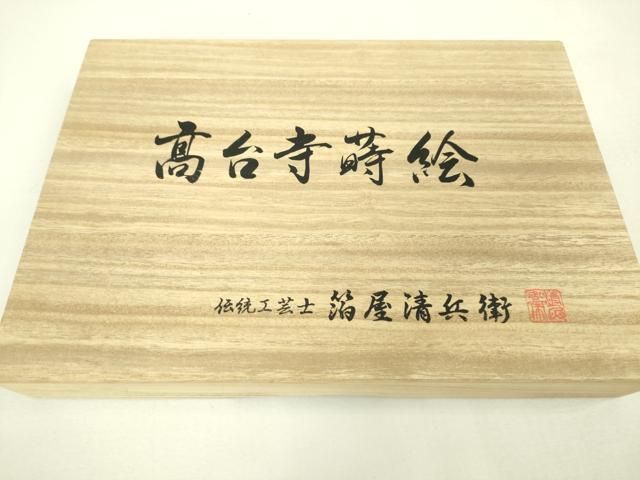 髙台寺蒔絵
伝統工芸士 箔屋清兵衛